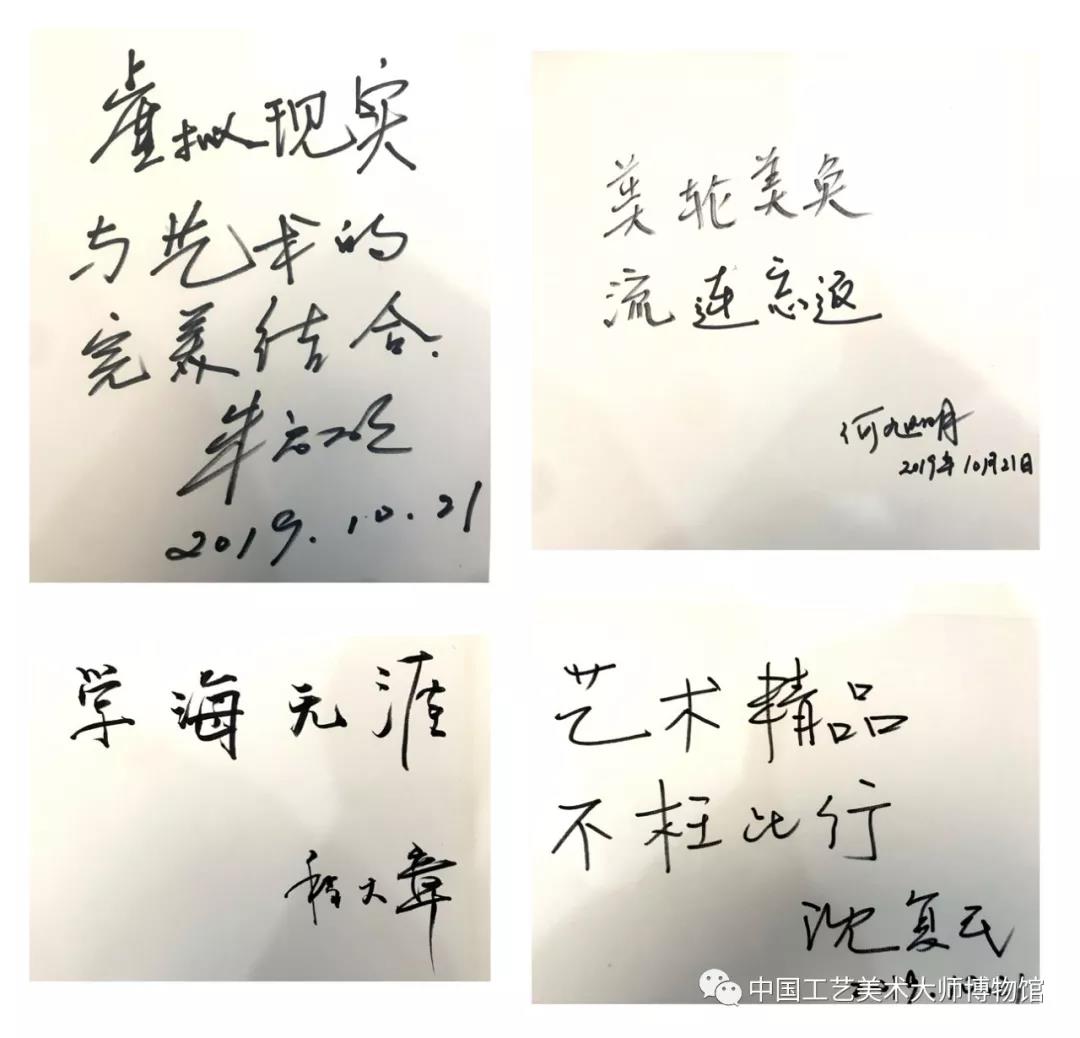 虚拟现实
与艺术的
完美结合.
2019.10.21
美轮美奂
流连忘返
何旭明
2019年10月21日
学海无涯
程大章
艺术精品
不枉此行
沈复民
2019.10.21
中国工艺美术大师博物馆